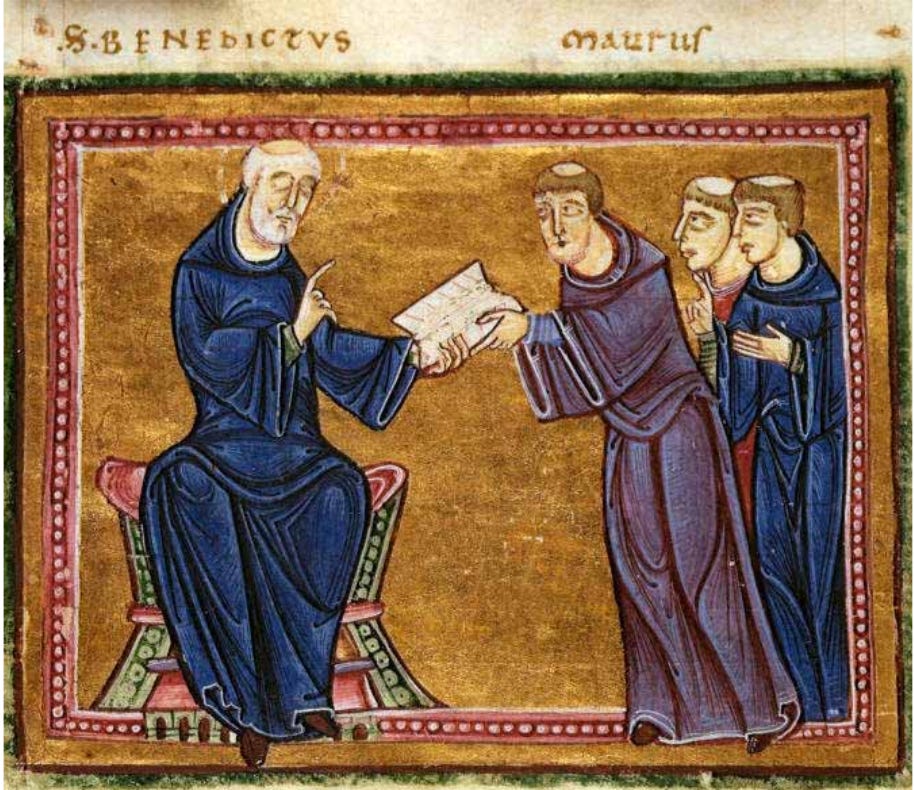 .S. BENEDICTUS maurus